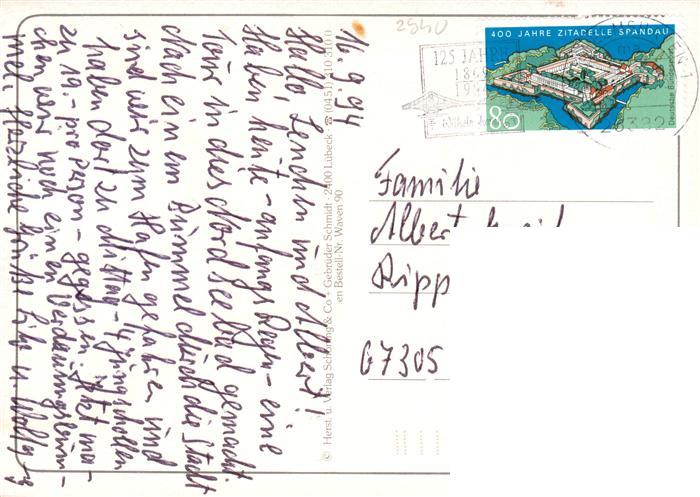 16.9.94
Hallo, Lenchen und Albert!
Haben heute - anfangs Regen - eine
Tour in dies Nordseebad gemacht
Nach einem Bummel durch die Stadt
sind wir zum Hafen gefahren und
haben dort zu Mittag - 4 Jungschollen
zu 19.- pro Person - gegessen. Jetzt ma-
chen wir noch einen Verdauungsbum-
mel. Herzliche Grüße
© Herst. u. Verlag Schöning & Co + Gebrüder Schmidt · 2400 Lübeck · ☎ (0451)
en Bestell-Nr. Waven 90
2540
125 JAHRE
400 JAHRE ZITADELLE SPANDAU
Deutsche Bundespost
80
Familie
Albert
Ripp
67305